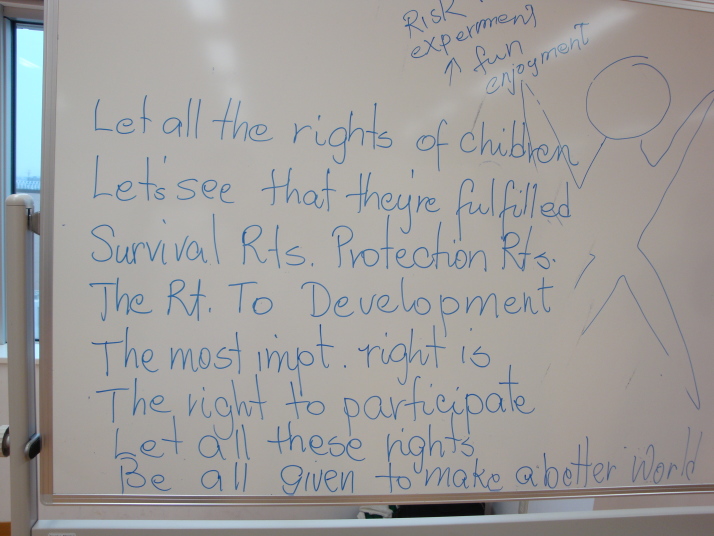 Risk
experiment
↑ fun
enjoyment
Let all the rights of children
Let's see that they're fulfilled
Survival Rts. Protection Rts.
The Rt. To Development
The most impt. right is
The right to participate
Let all these rights
Be all given to make a better World